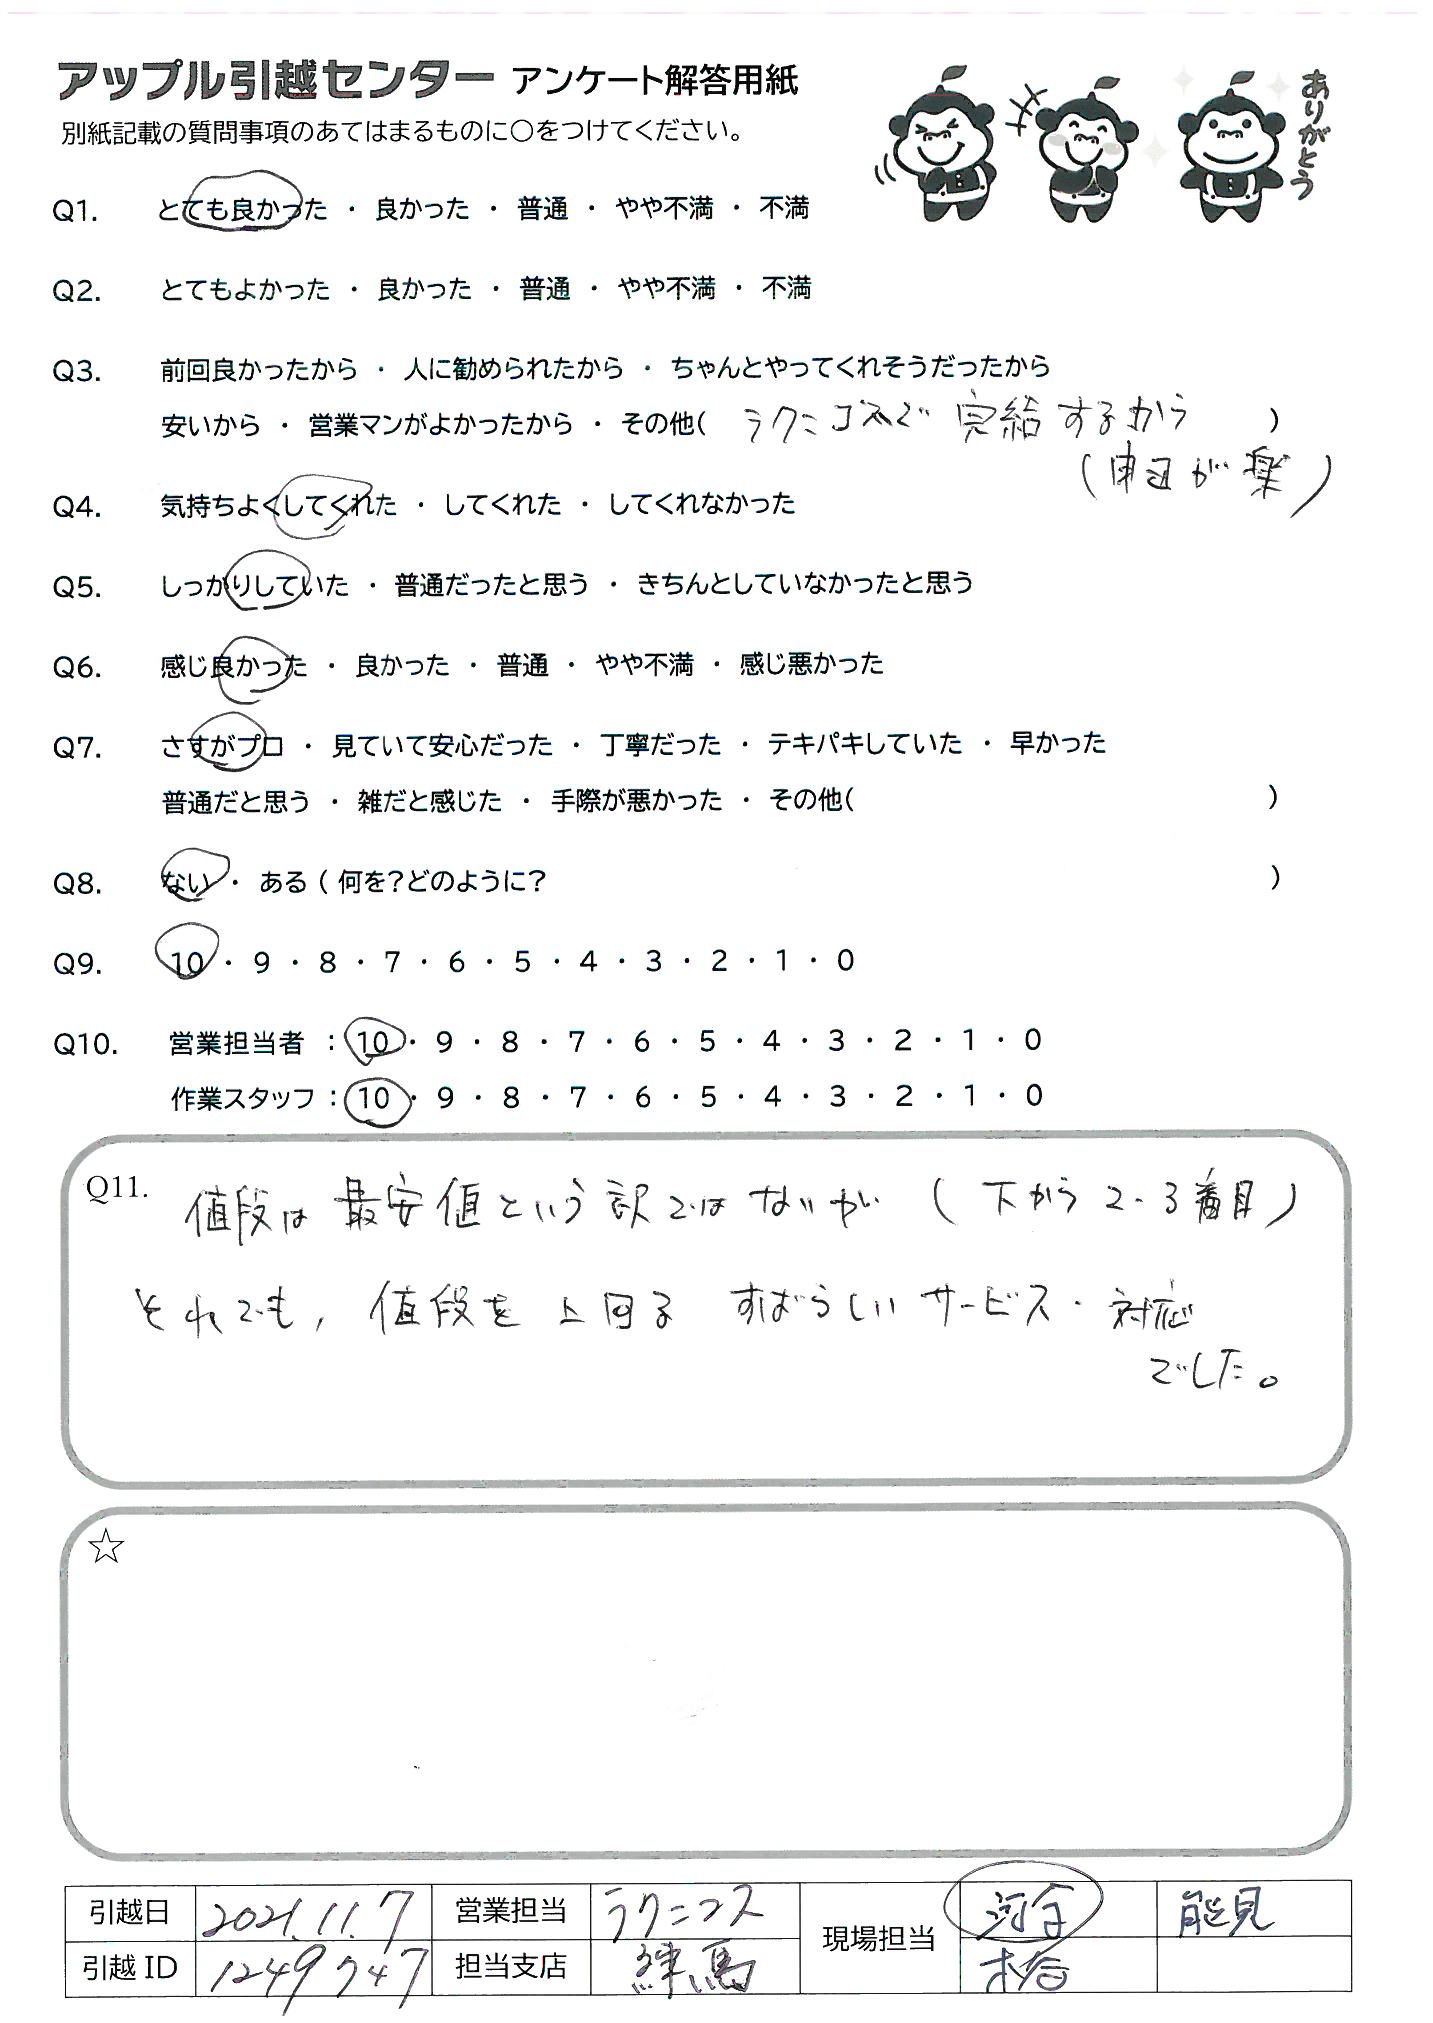 アップル引越センター アンケート解答用紙
別紙記載の質問事項のあてはまるものに○をつけてください。
ありがとう
Q1. とても良かった ・ 良かった ・ 普通 ・ やや不満 ・ 不満
Q2. とてもよかった ・ 良かった ・ 普通 ・ やや不満 ・ 不満
Q3. 前回良かったから ・ 人に勧められたから ・ ちゃんとやってくれそうだったから
安いから ・ 営業マンがよかったから ・ その他( ラクニコスで 完結するから )
(申込が楽)
Q4. 気持ちよくしてくれた ・ してくれた ・ してくれなかった
Q5. しっかりしていた ・ 普通だったと思う ・ きちんとしていなかったと思う
Q6. 感じ良かった ・ 良かった ・ 普通 ・ やや不満 ・ 感じ悪かった
Q7. さすがプロ ・ 見ていて安心だった ・ 丁寧だった ・ テキパキしていた ・ 早かった
普通だと思う ・ 雑だと感じた ・ 手際が悪かった ・ その他( )
Q8. ない ・ ある ( 何を?どのように? )
Q9. 10 ・ 9 ・ 8 ・ 7 ・ 6 ・ 5 ・ 4 ・ 3 ・ 2 ・ 1 ・ 0
Q10. 営業担当者 : 10 ・ 9 ・ 8 ・ 7 ・ 6 ・ 5 ・ 4 ・ 3 ・ 2 ・ 1 ・ 0
作業スタッフ : 10 ・ 9 ・ 8 ・ 7 ・ 6 ・ 5 ・ 4 ・ 3 ・ 2 ・ 1 ・ 0
Q11. 値段は最安値という訳ではないが (下から2.3番目)
それでも, 値段を上回る すばらしいサービス・対応
でした。
☆
引越日 2021.11.7 営業担当 ラクニコス 現場担当 河合 能見
引越ID 1249747 担当支店 練馬